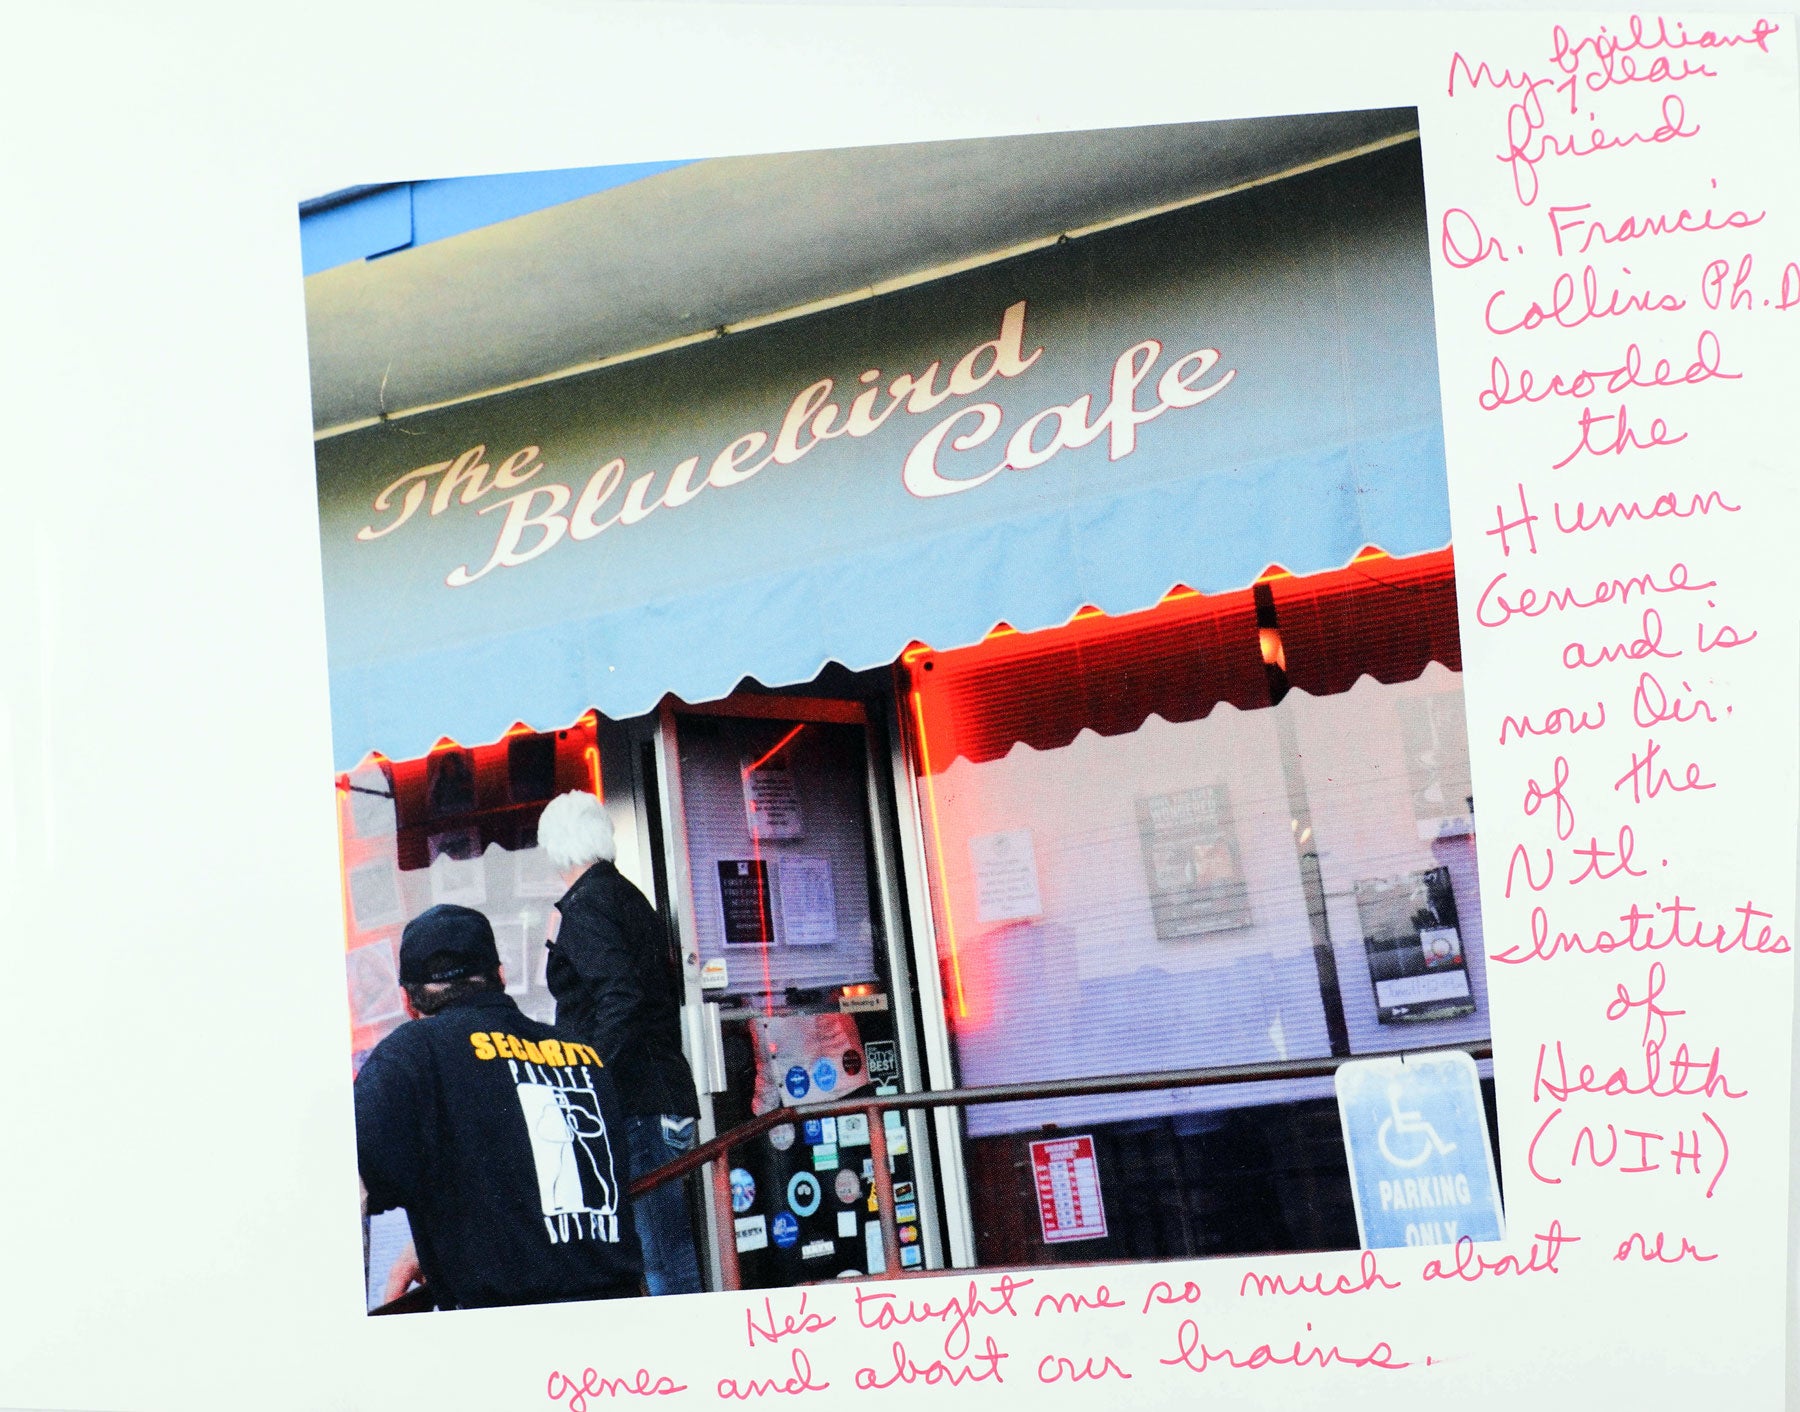 My brilliant
1 dear
friend
Dr. Francis
Collins Ph.D
decoded
the
Human
Genome
and is
now Dir.
of the
Ntl.
Institutes
of
Health
(NIH)
The
Bluebird
Cafe
SECURITY
POLITE
CITY'S
BEST
No Smoking
BUSINESS
HOURS
PARKING
ONLY
He's taught me so much about our
genes and about our brains.